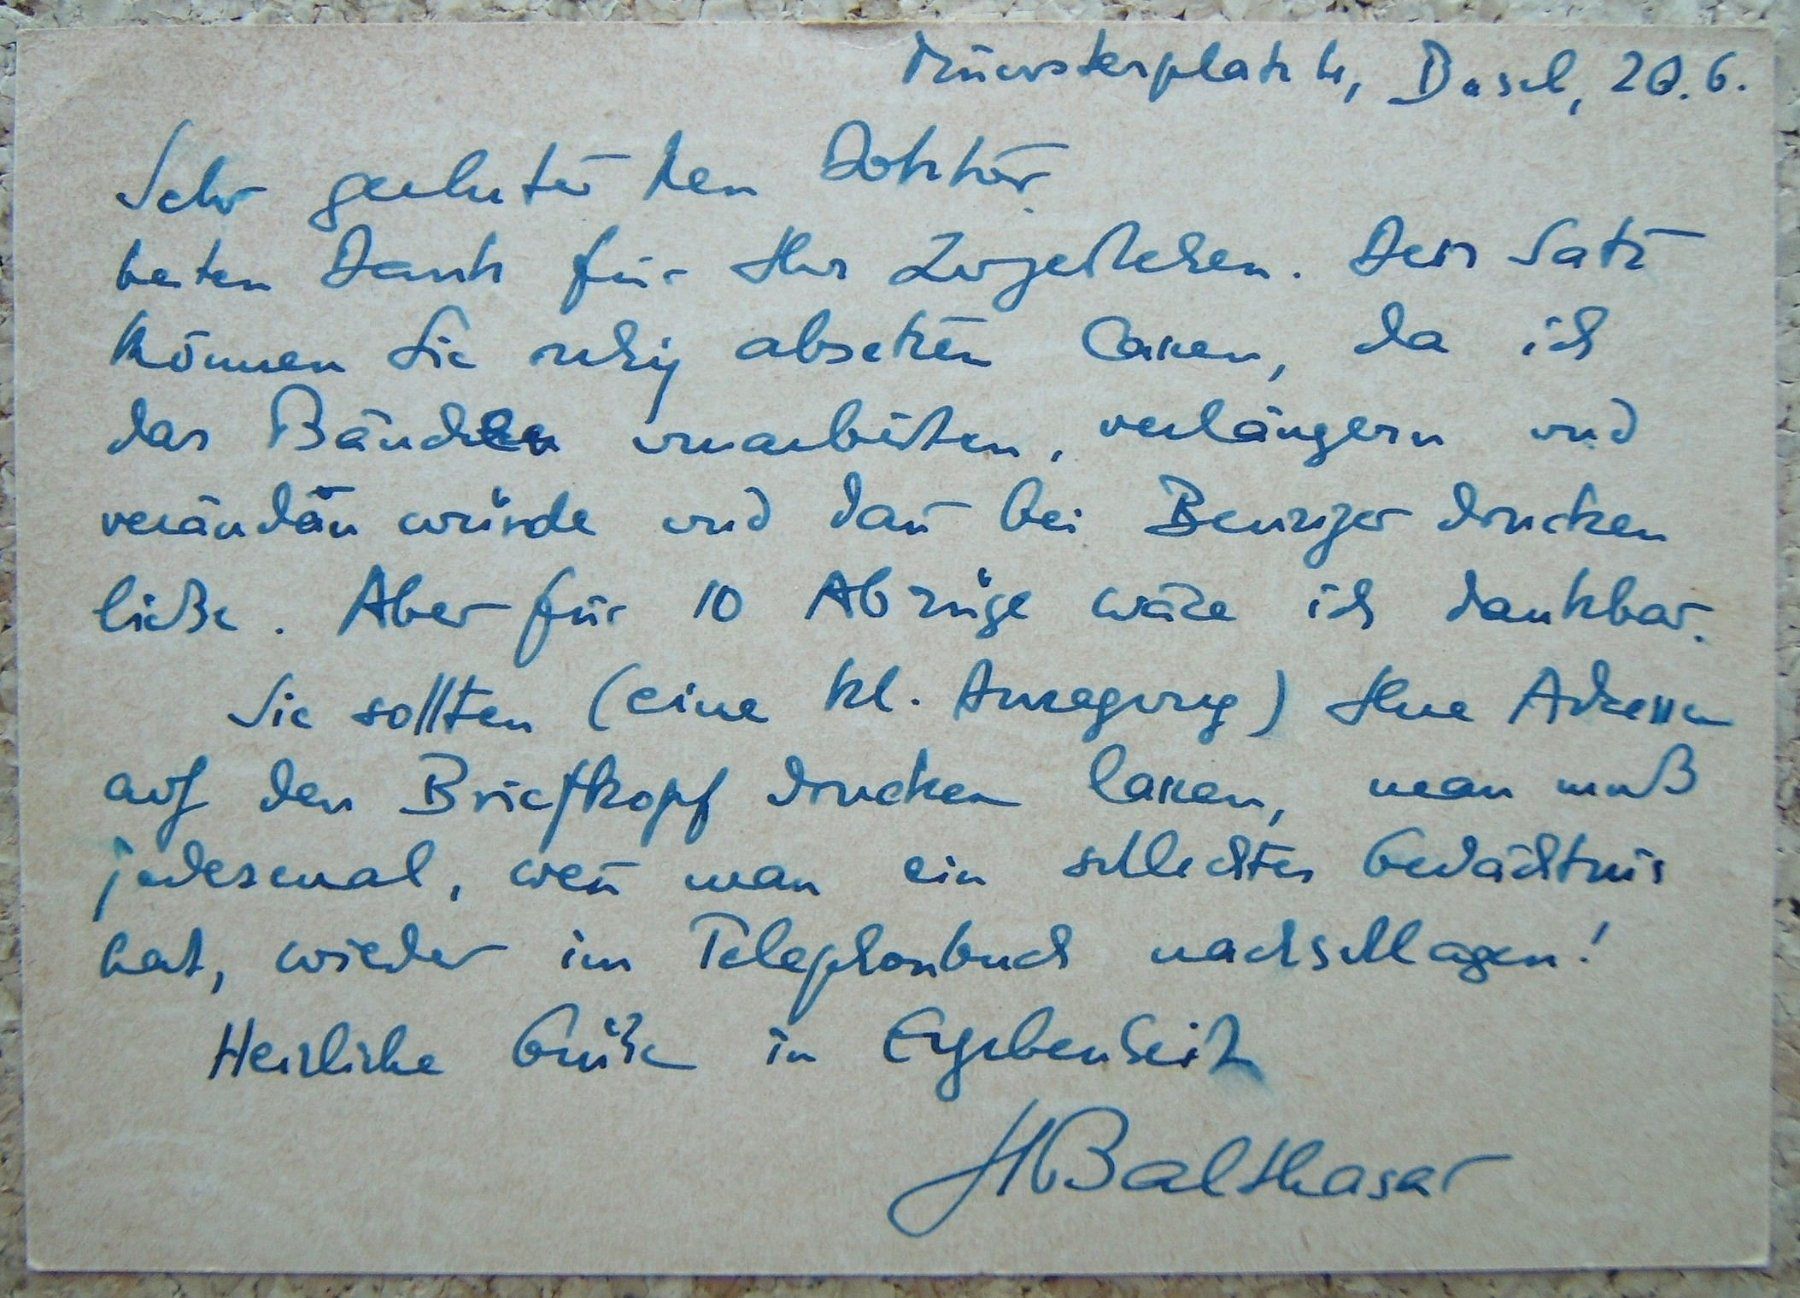 Münsterplatz 4, Basel, 20. 6.
Sehr geehrter Herr Doktor
besten Dank für Ihr Zugestehen. Den Satz
können Sie ruhig absetzen lassen, da ich
das Bändchen umarbeiten, verlängern und
verändern würde und dañ bei Benziger drucken
ließe. Aber für 10 Abzüge wäre ich dankbar.
Sie sollten (eine kl. Anregung) Ihre Adresse
auf den Briefkopf drucken lassen, man muß
jedesmal, weñ man ein schlechtes Gedächtnis
hat, wieder im Telephonbuch nachschlagen!
Herzliche Grüße in Ergebenheit
HBalthasar